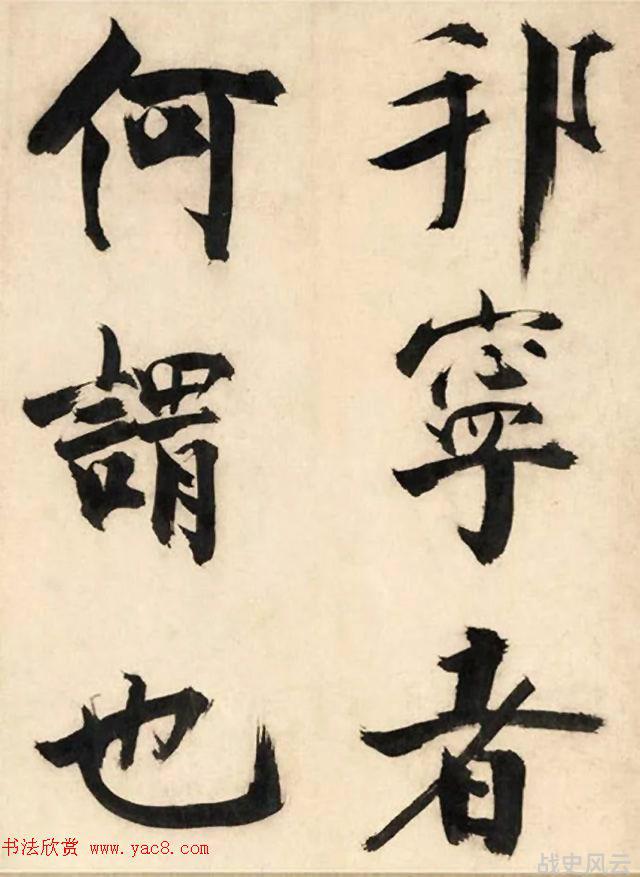 邦寧者
何謂也
书法欣赏 www.yac8.com
战史风云